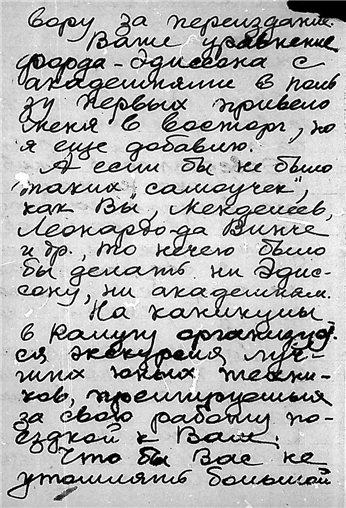 вору за переиздание.
Ваше уравнение
Форда-Эдиссона с
академиями в поль
зу первых привело
меня в восторг, но
я еще добавлю.
А если бы не было
таких "самоучек",
как Вы, Менделеев,
Леонардо-да Винче
и др., то нечего было
бы делать ни Эдис-
сону, ни академиям.
На каникулы
в Калугу организует
ся экскурсия луч-
ших юных техни-
ков, премируемых
за свою работу по-
ездкой к Вам.
Что бы Вас не
утомлять большой